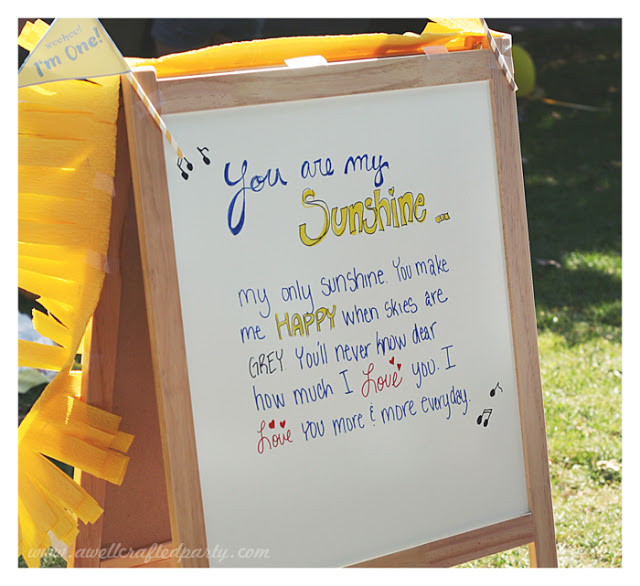 woohoo!
I'm One!
You are my
Sunshine...
my only sunshine. You make
me HAPPY when skies are
GREY. You'll never know dear
how much I Love you. I
Love you more & more everyday.
www.awellcraftedparty.com